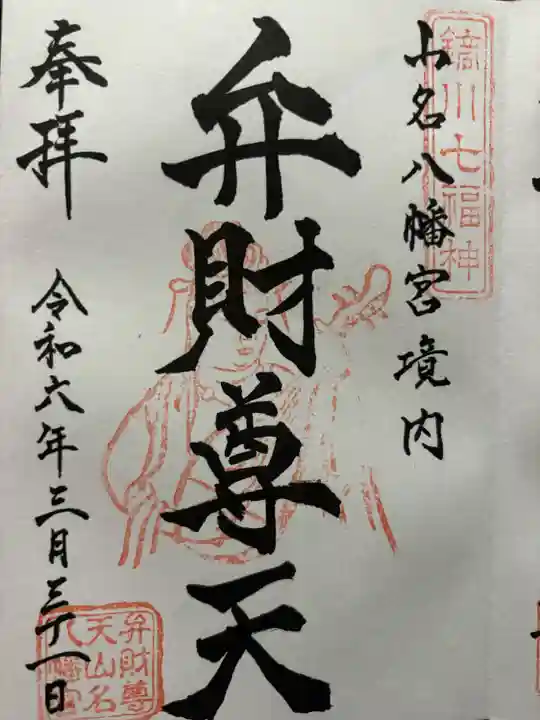 鏑川七福神
山名八幡宮境内
弁財尊天
奉拝
令和六年三月三十一日
弁財尊
天山名
八幡宮